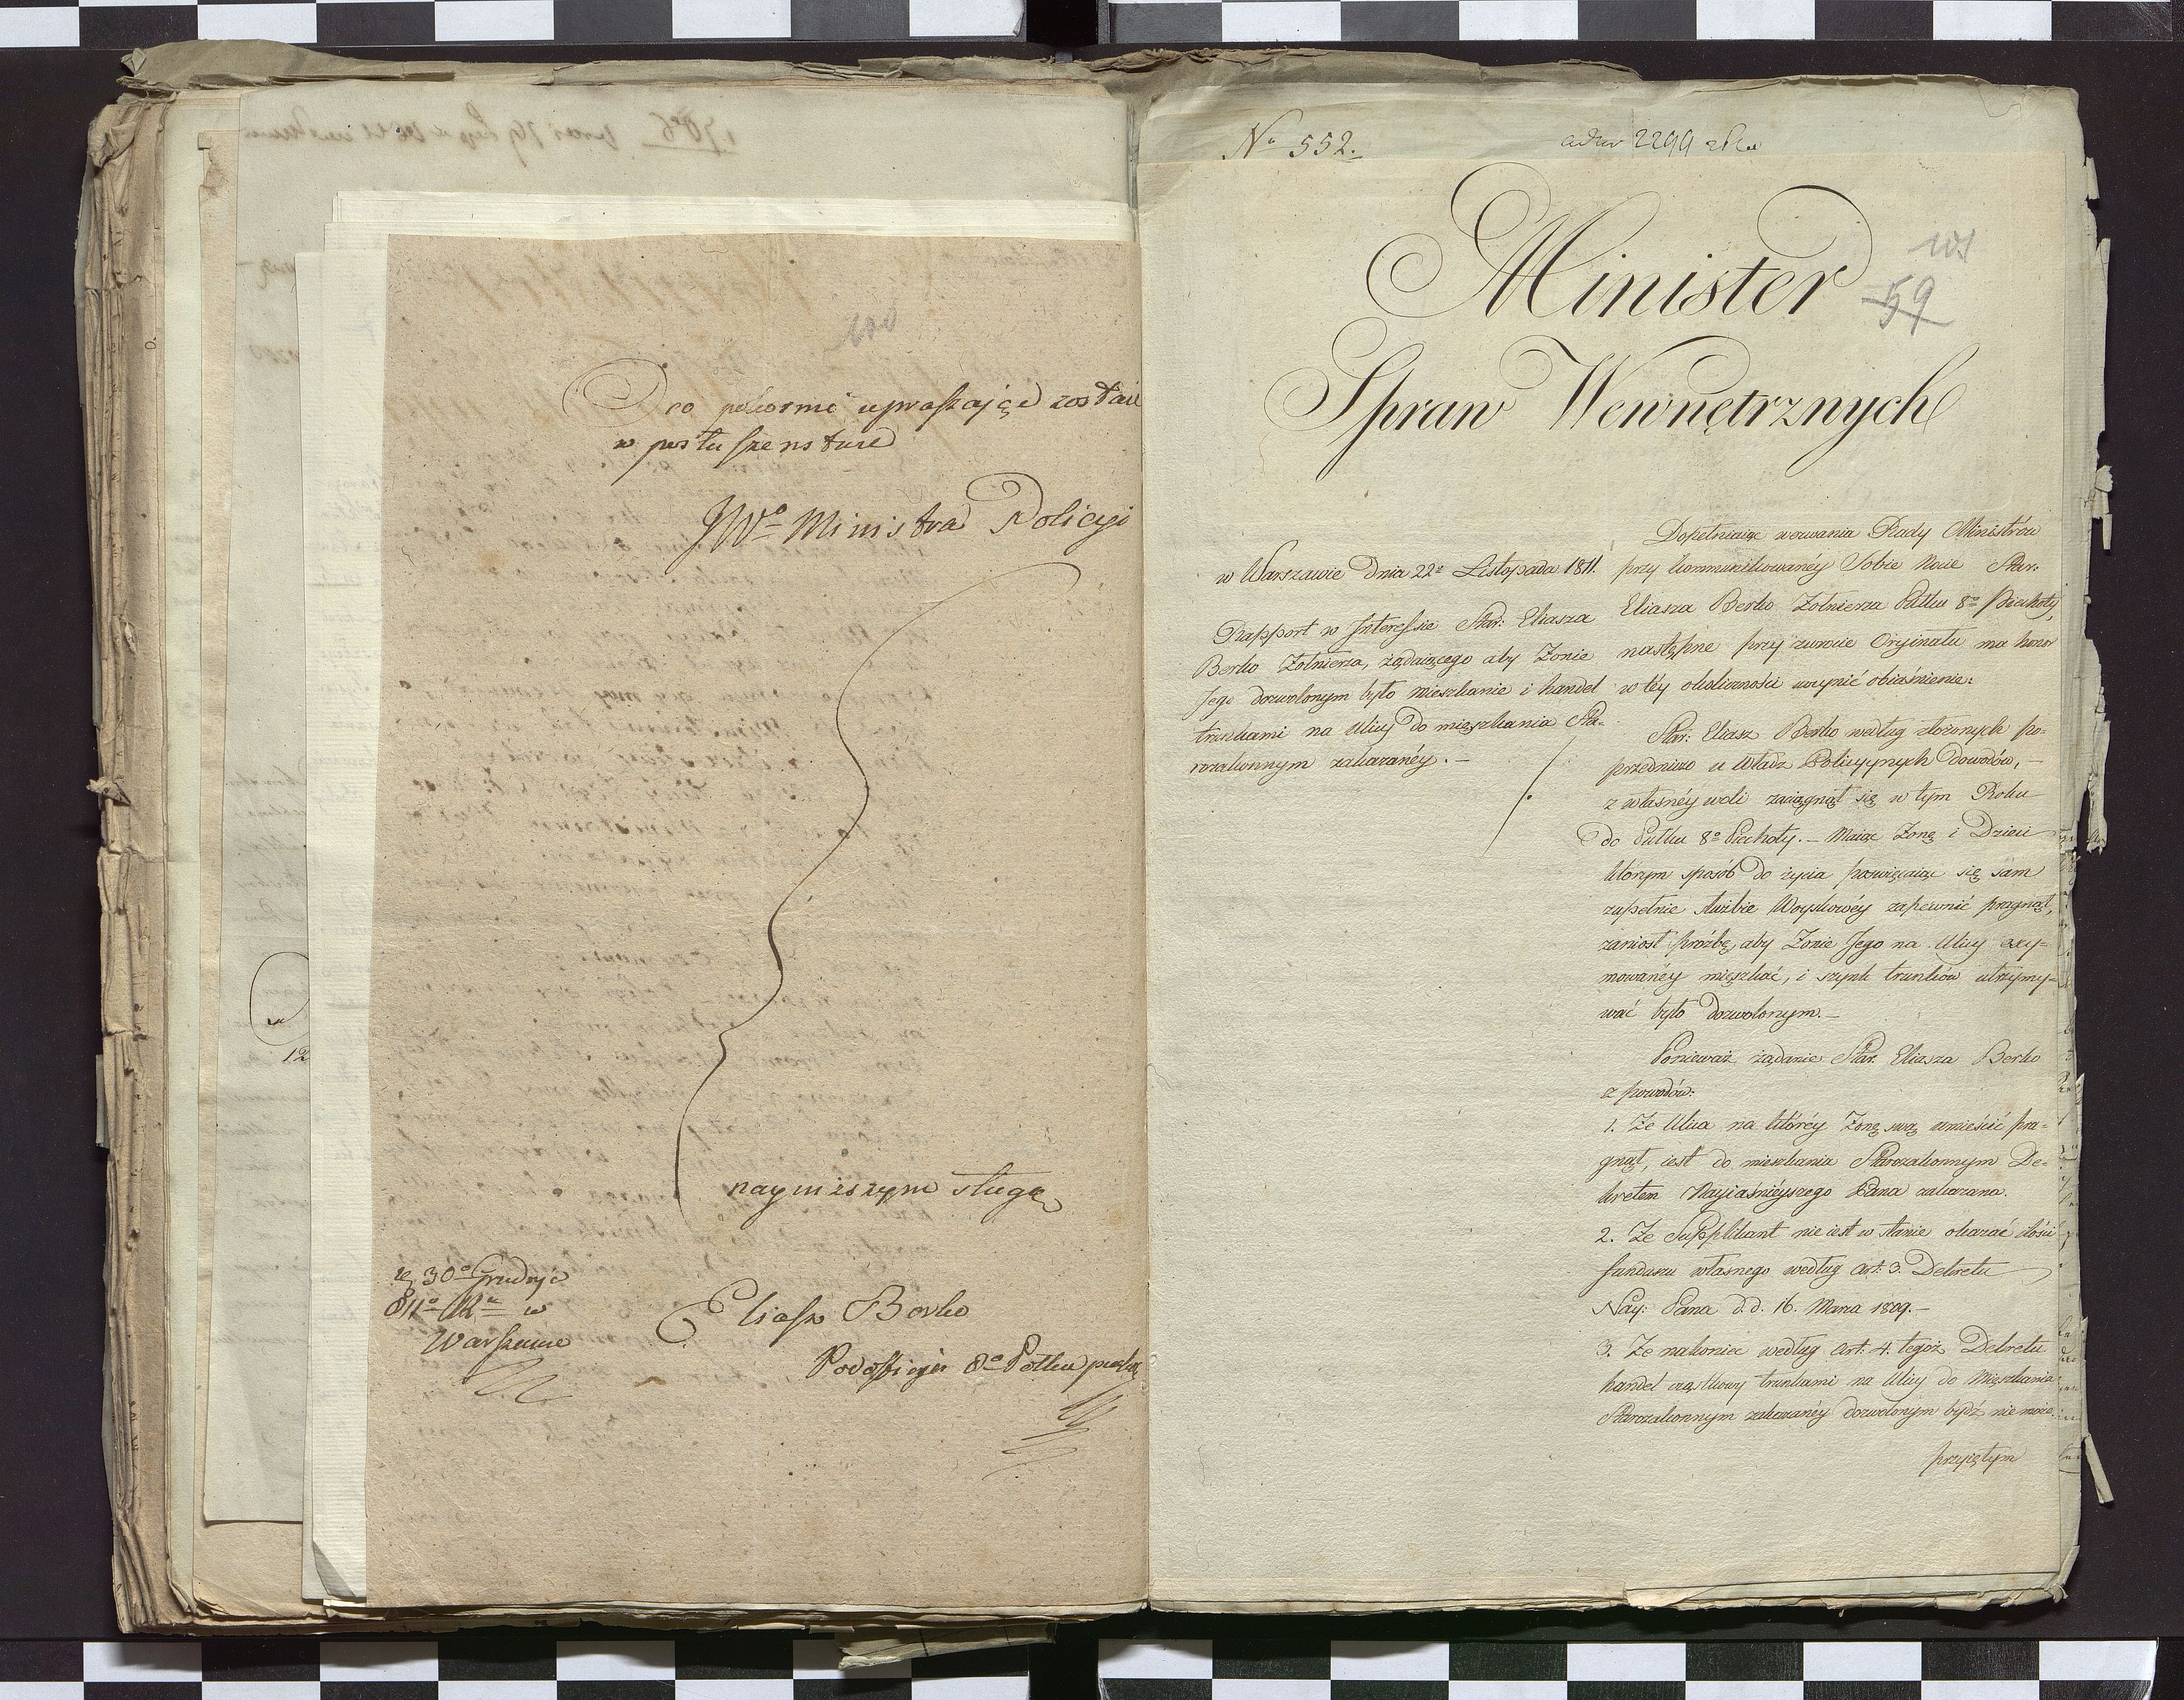 100
O co pokornie upraszając zostaie
w posłuszenstwie
JWo Ministra Policyi
naynizszym sługą
30o Grudnia
811o Rku w
Warszawie
Eliasz Berko
Podofficyer 8o Połku piechoty
12
No 552.
ad nr 2299
101
59
Minister
Spraw Wewnętrznych
w Warszawie Dnia 22o Listopada 1811.
Rapport w Interessie Star: Eliasza
Berko Żołnierza, żądaiącego aby Żonie
Jego dozwolonym było mieszkanie i handel
trunkami na Ulicy do mięszkania Sta-
rozakonnym zakazanéy. –
Dopełniaiąc wezwania Rady Ministrów
przy kommunikowanéy Sobie Nocie Star:
Eliasza Berko Żołnierza Pułku 8o Piechoty,
następne przy zwrocie Oryginału ma honor
w téy okoliczności uczynić obiaśnienie:
Star: Eliasz Berko według złożonych po-
przedniczo u Władz Policyynych dowodów, –
z własnéy woli zaciągnął się w tym Roku
do Pułku 8o Piechoty. – Maiąc Żonę i Dzieci
którym sposób do życia poswięcaiąc się sam
zupełnie służbie Woyskowéy zapewnić pragnął,
zaniosł prózbę, aby Żonie Jego na Ulicy exy-
mowanéy mięszkać, i szynk trunków utrzymy-
wać było dozwolonym. –
Ponieważ żądanie Star. Eliasza Berko
z powodów:
1. Że Ulica na któréy Żonę swą umieścić pra-
gnął, iest do mieszkania Starozakonnym De-
kretem Nayiaśnieyszego Pana zakazana.
2. Że Supplikant nie iest w stanie okazać ilości
funduszu własnego według Art: 3. Dekretu
Nay: Pana d. d. 16. Marca 1809. –
3. Że nakoniec według Art: 4. tegoż Dekretu
handel cząstkowy trunkami na Ulicy do Mięszkania
Starozakonnym zakazanéy dozwolonym bydź nie może.
przyiętym